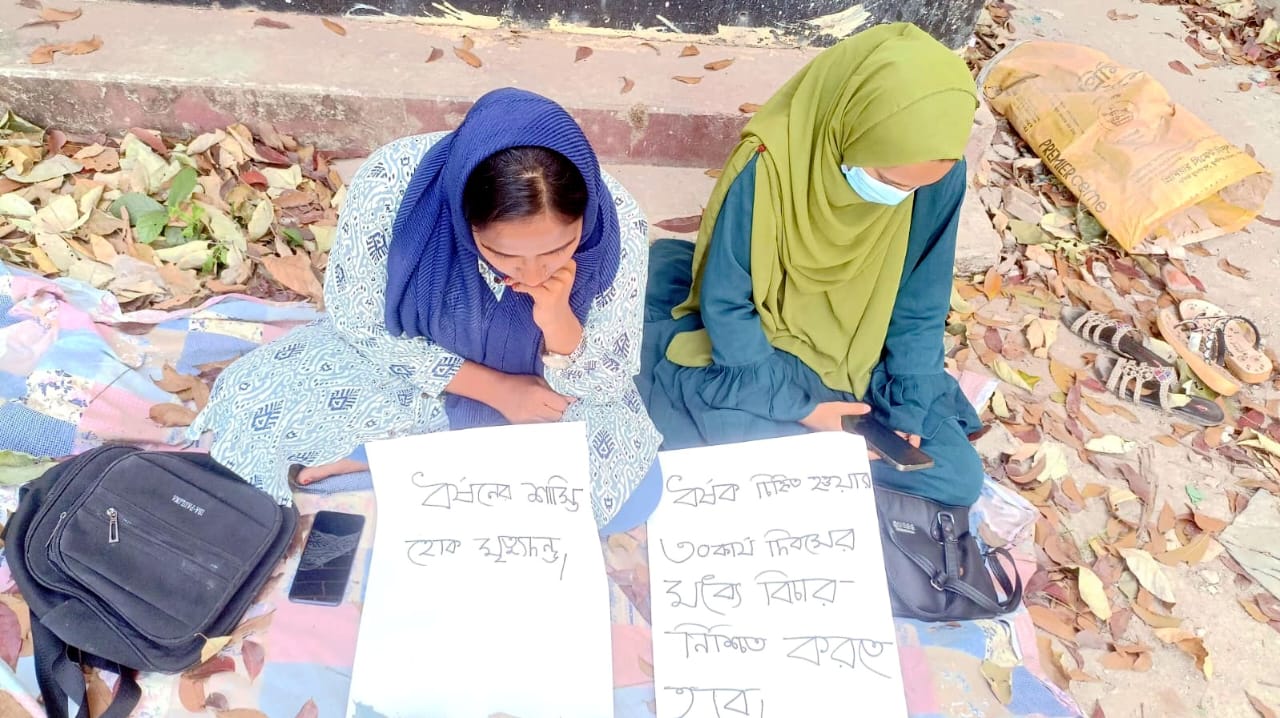 ধর্ষনের শাস্তি
হোক মৃত্যুদন্ড,
ধর্ষক চিহ্নিত হওয়ার
৩০কার্য দিবসের
মধ্যে বিচার
নিশ্চিত করতে
হবে,
PREMIER CEMENT